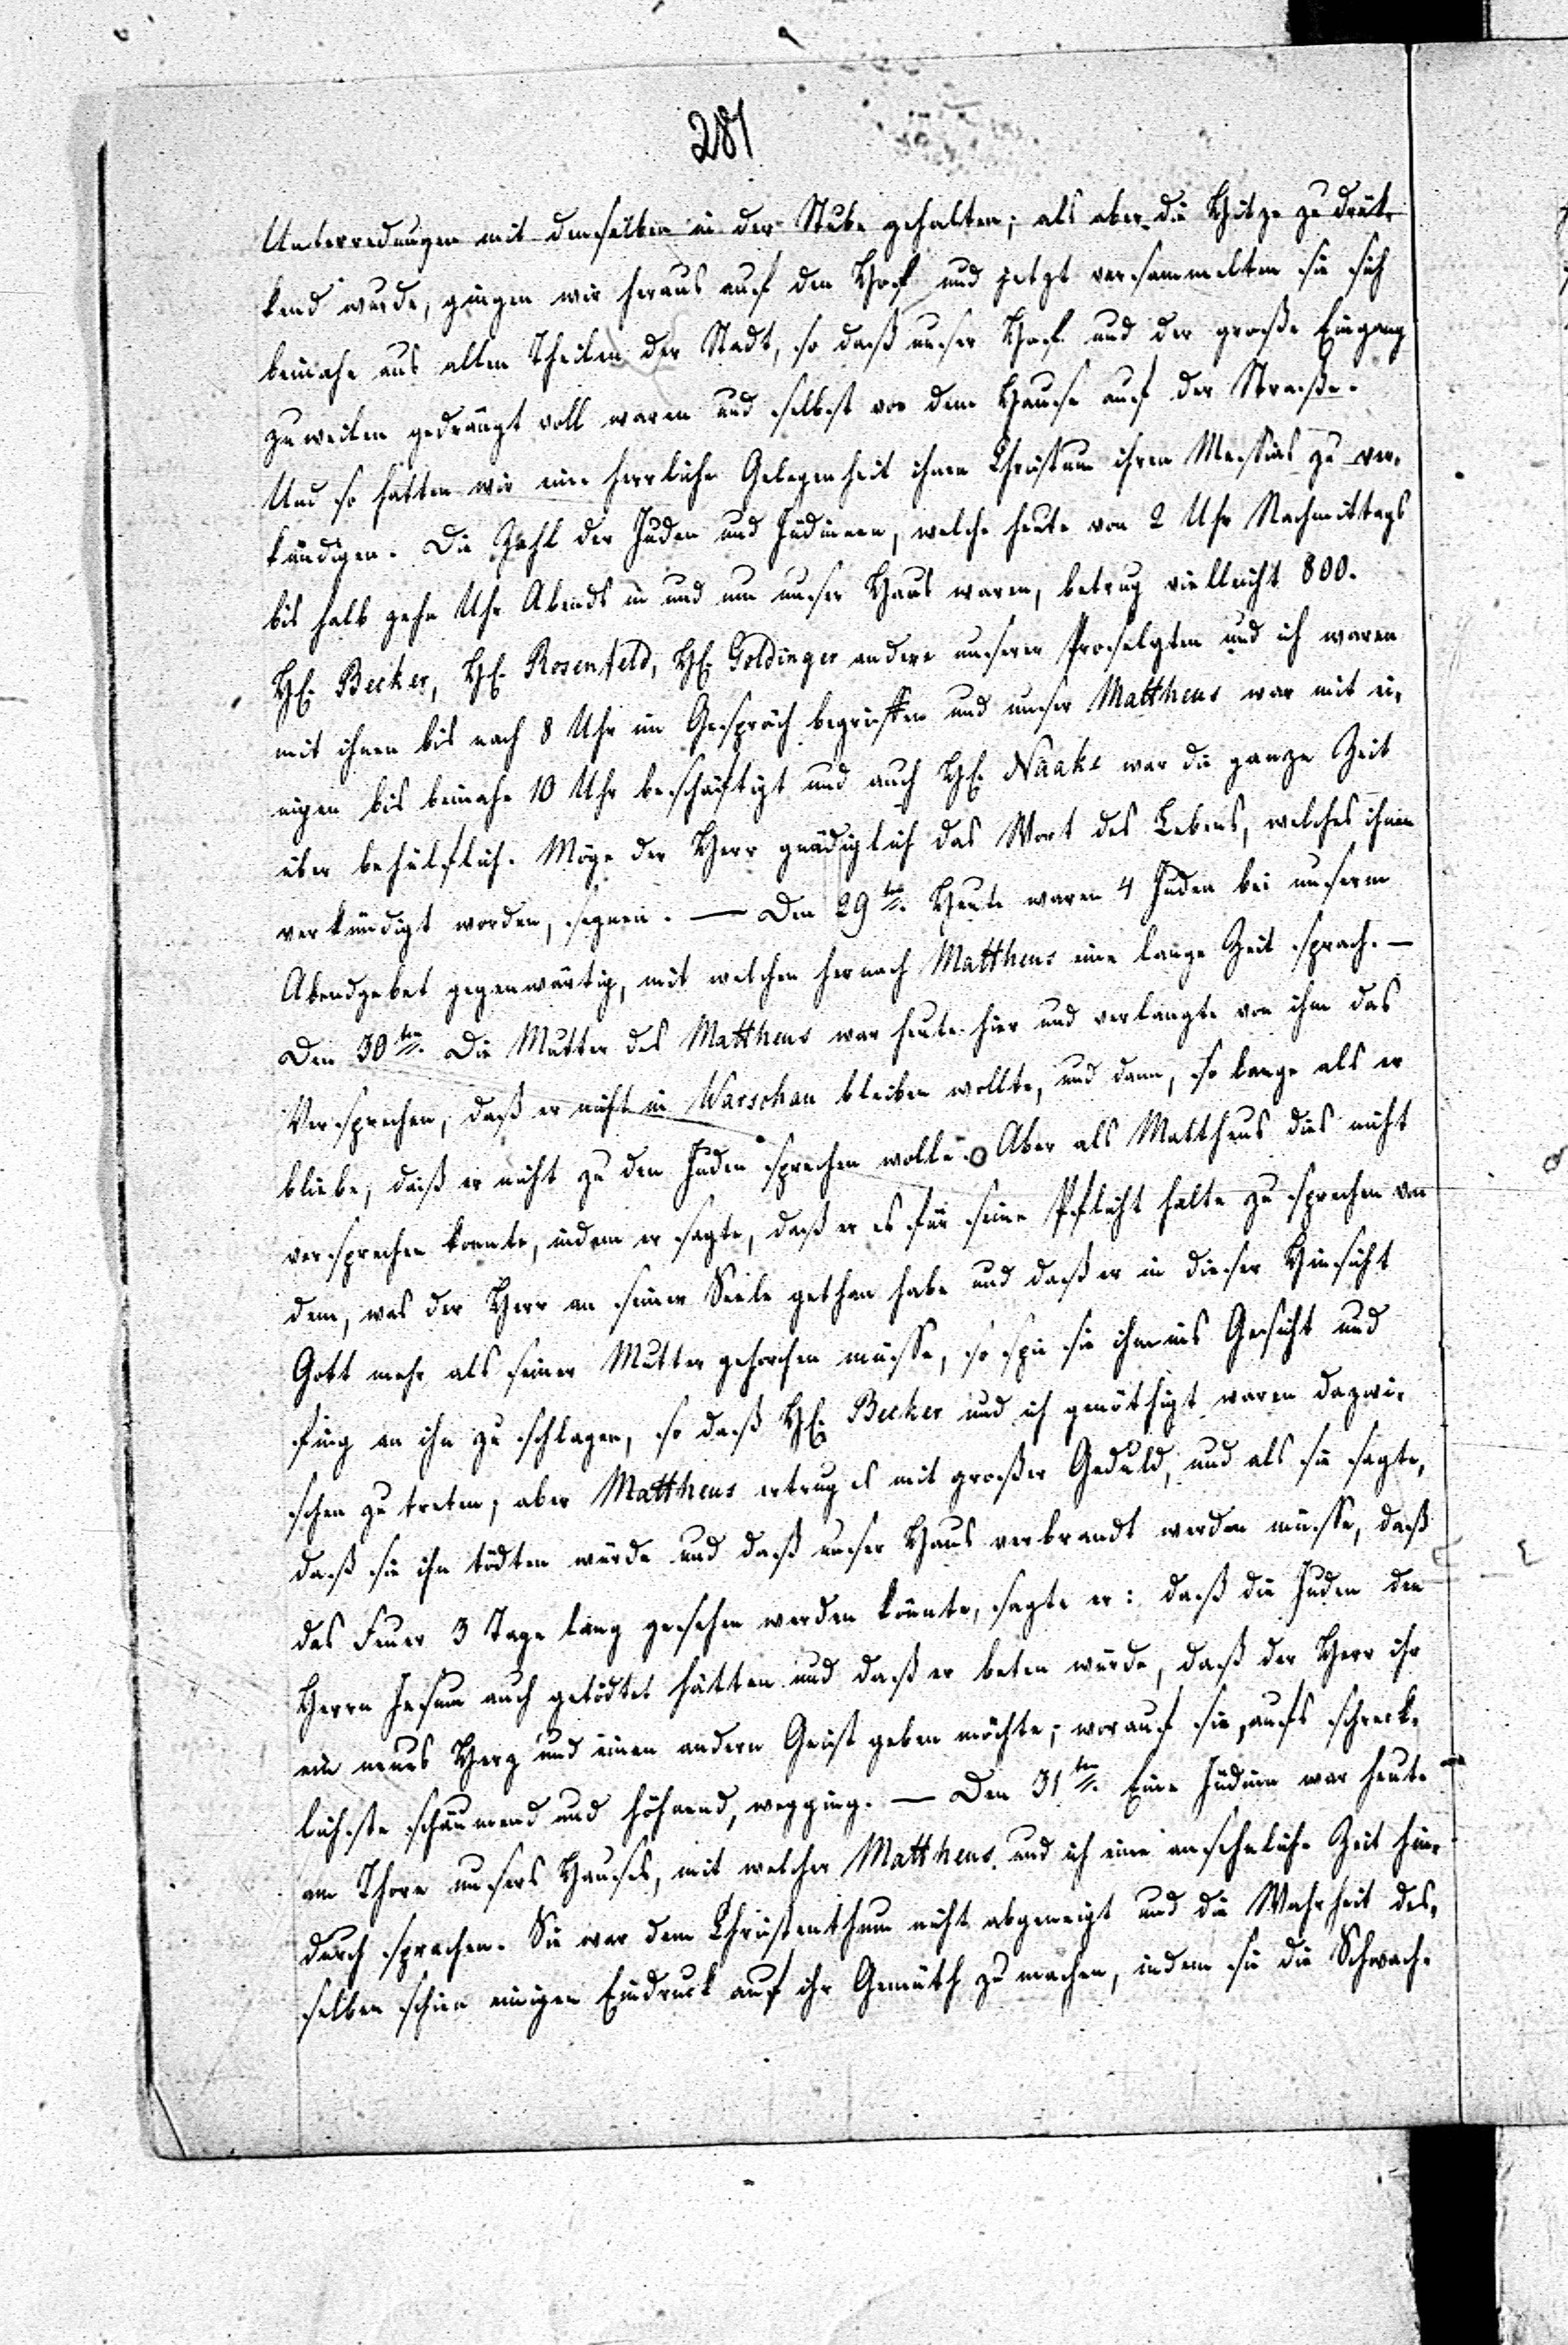 281
Unterredungen mit denselben in der Stube gehalten; als aber die Hitze zu drük-
kend wurde, gingen wir heraus auf den Hof und jetzt versammelten sie sich
beinahe aus allen Theilen der Stadt, so daß unser Hof und der große Eingang
zuweilen gedrängt voll waren und selbst vor dem Hause auf der Straße.
Und so hatten wir eine herrliche Gelegenheit ihnen Christum ihren Messias zu ver-
kündigen. Die Zahl der Juden und Jüdinnen, welche heute von 2 Uhr Nachmittags
bis halb zehn Uhr Abends in und um unser Haus waren, betrug vielleicht 800.
H. Becker, H. Rosenfeld, H. Goldinger andere unserer Proselyten und ich waren
mit ihnen bis nach 8 Uhr im Gespräch begriffen und unser Mattheus war mit ei-
nigen bis beinahe 10 Uhr beschäftigt und auch H. Naake war die ganze Zeit
über behülflich. Möge der Herr gnädiglich das Wort des Lebens, welches ihnen
verkündigt worden, segnen. — Den 29ten. Heute waren 4 Juden bei unserm
Abendgebet gegenwärtig, mit welchen hernach Mattheus eine lange Zeit sprach. —
Den 30ten. Die Mutter des Mattheus war heute hier und verlangte von ihm das
Versprechen, daß er nicht in Warschau bleiben wollte, und dann, so lange als er
bliebe, daß er nicht zu den Juden sprechen wolle. Aber als Mattheus dies nicht
versprechen konnte, indem er sagte, daß er es für seine Pflicht halte zu sprechen von
dem, was der Herr an seiner Seele gethan habe und daß er in dieser Hinsicht
Gott mehr als seiner Mutter gehorchen müsse, so spie sie ihm ins Gesicht und
fing an ihn zu schlagen, so daß H. Becker und ich genöthigt waren dazwi-
schen zu treten; aber Mattheus ertrug es mit großer Geduld, und als sie sagte,
daß sie ihn tödten würde und daß unser Haus verbrandt werden müsse, daß
das Feuer 3 Tage lang gesehen werden könnte, sagte er: daß die Juden den
Herrn Jesum auch getödtet hätten und daß er beten würde, daß der Herr ihr
ein neues Herz und einen andern Geist geben möchte; worauf sie, aufs schreck-
lichste schäumend und höhnend, wegging. — Den 31ten. Eine Jüdinn war heute
am Thore unsers Hauses, mit welcher Mattheus und ich eine ansehnliche Zeit hin-
durch sprachen. Sie war dem Christenthum nicht abgeneigt und die Wahrheit des-
selben schien einigen Eindruck auf ihr Gemüth zu machen, indem sie die Schwach-